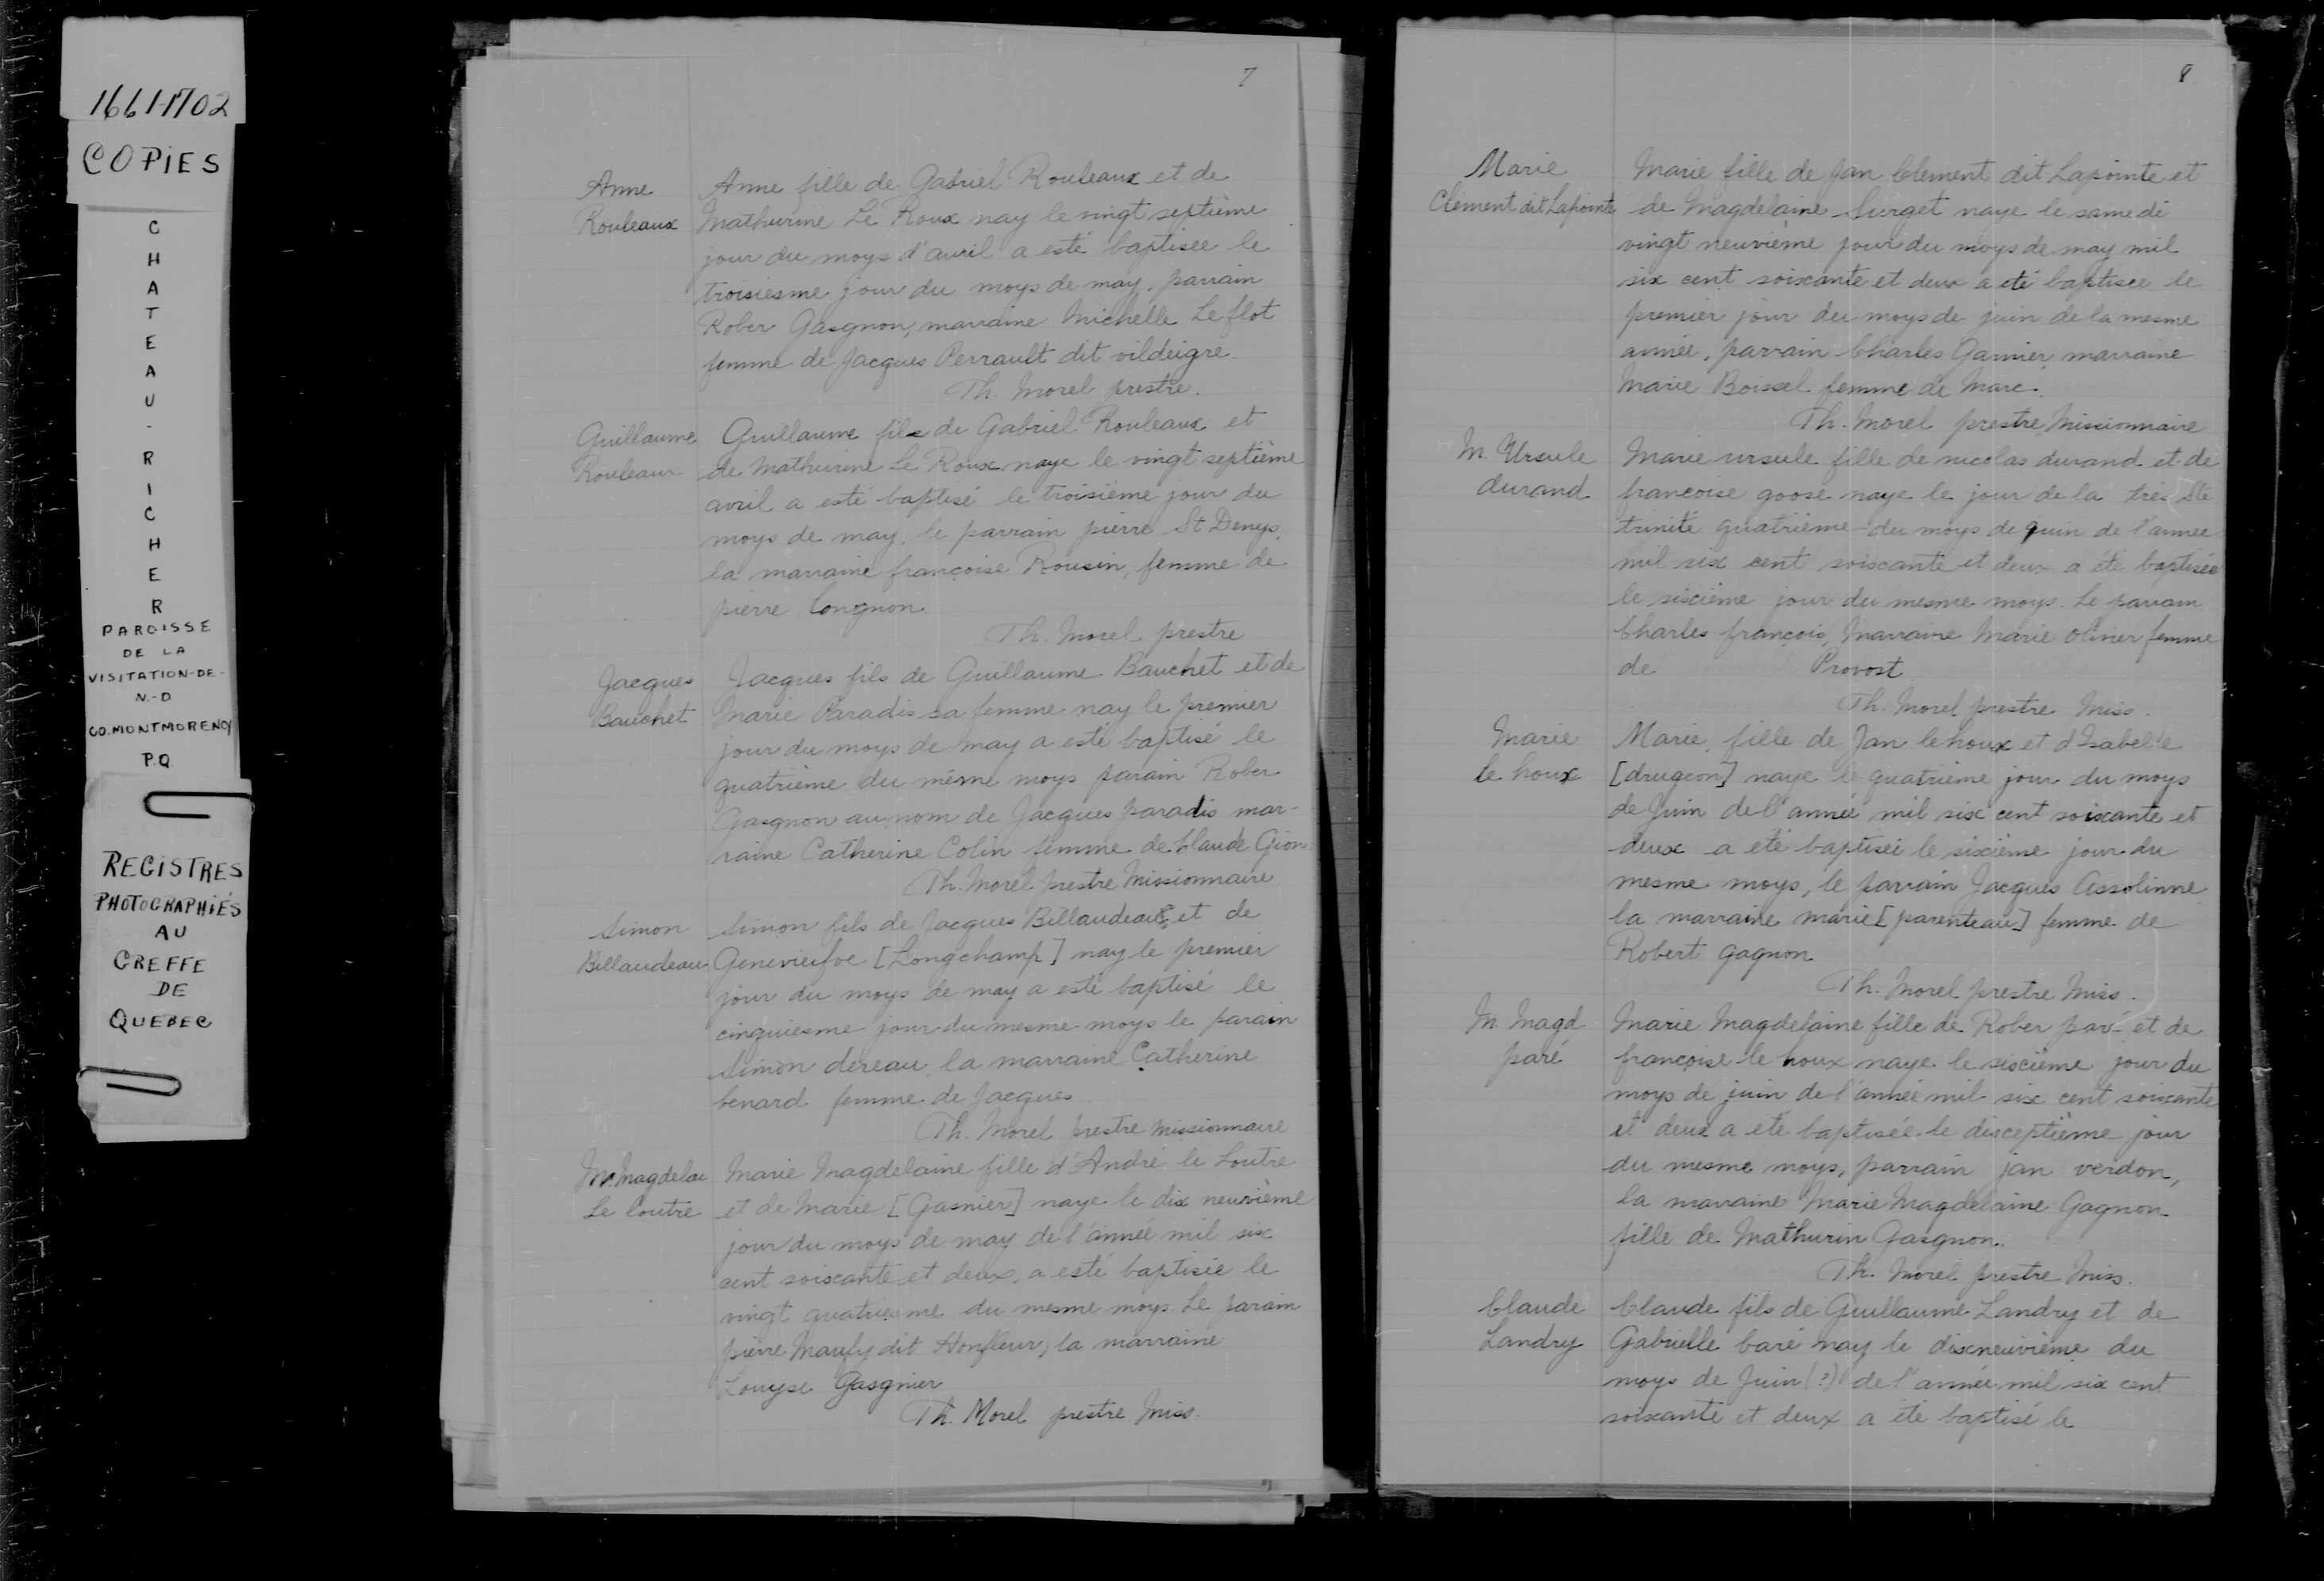 1661-1702
COPIES
CHATEAU-RICHER
PAROISSE
DE LA
VISITATION-DE-
N.-D
CO. MONTMORENCY
P.Q
REGISTRES
PHOTOGRAPHIÉS
AU
GREFFE
DE
QUEBEC
7
Anne
Rouleaux
Anne fille de Gabriel Rouleaux et de
Mathurine Le Roux nay le vingt septième
jour du moys d'auril a esté baptisee le
troisiesme jour du moys de may, parrain
Rober Gasgnon, marraine Michelle Le flot
femme de Jacques Perrault dit vildeigre.
Th. Morel prestre.
Guillaume
Rouleaux
Guillaume fils de Gabriel Rouleaux et
de Mathurine Le Roux naye le vingt septième
avril a esté baptisé le troisième jour du
moys de may, le parrain pierre St Denys,
la marraine françoise Rousin, femme de
pierre Congnon.
Th. Morel prestre
Jacques
Bauchet
Jacques fils de Guillaume Bauchet et de
Marie Paradis sa femme nay le premier
jour du moys de may a esté baptisé le
quatrième du même moys parain Rober
Gasgnon au nom de Jacques paradis mar-
raine Catherine Colin femme de Claude Gion
Th. Morel prestre Missionnaire
Simon
Billaudeau
Simon fils de Jacques Billaudeaux et de
Genevieifve [Longchamp] nay le premier
jour du moys de may a esté baptisé le
cinquiesme jour du mesme moys le parain
Simon dereau, la marraine Catherine
benard femme de Jacques
Th. Morel prestre missionnaire
M. Magdelae
Le loutre
Marie Magdelaine fille d'André le Loutre
et de Marie [Gasnier] naye le dix neuvième
jour du moys de may de l'année mil six
cent soixante et deux, a esté baptisée le
vingt quatriesme du mesme moys. Le parain
pierre Maufy dit Honfleur, la marraine
Louyse Gasgnier
Th. Morel prestre Miss.
8
Marie
Clément dit Lapointe
Marie fille de Jan Clement dit Lapointe et
de Magdelaine Surget naye le samedi
vingt neuvième jour du moys de may mil
six cent soixante et deux a eté baptisee le
premier jour du moys de juin de la mesme
année, parrain Charles Garnier, marraine
Marie Boissel femme de Marc.
Th. Morel prestre Missionnaire
M. Ursule
durand
Marie ursule fille de nicolas durand et de
francoise goose naye le jour de la très Ste
trinité quatrième du moys de juin de l'annee
mil six cent soixante et deux a été baptisée
le sixième jour du mesme moys. Le parrain
Charles françois, Marraine Marie olivier femme
de Provost
Th. Morel prestre Miss.
Marie
le houx
Marie fille de Jan le houx et d'Isabelle
[drugeon] naye le quatrième jour du moys
de Juin de l'année mil six cent soixante et
deux a eté baptisée le sixième jour du
mesme moys, le parrain Jacques Assolinne
la marraine marie [parenteau] femme de
Robert gagnon
Th. Morel prestre Miss.
M Magd
paré
Marie Magdelaine fille de Rober paré et de
françoise le houx naye le sixième jour du
moys de juin de l'année mil six cent soixante
et deux a eté baptisée le dixseptième jour
du mesme moys, parrain jan verdon,
la marraine Marie Magdelaine Gagnon
fille de Mathurin Gasgnon.
Th. Morel prestre Miss.
Claude
Landry
Claude fils de Guillaume Landry et de
Gabrielle baré nay le dixneuvième du
moys de Juin (?) de l'année mil six cent
soixante et deux a été baptisé le